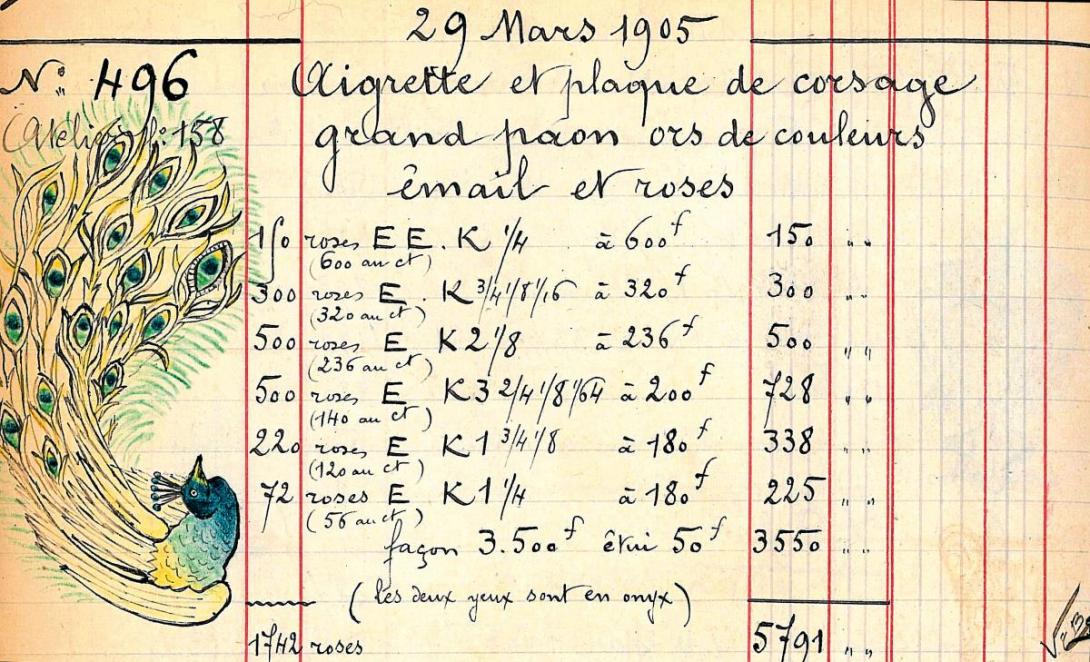 29 Mars 1905
N: 496 Aigrette et plaque de corsage
(Atelier N: 158 grand paon ors de couleurs
émail et roses
150 roses E E. K 1/4 à 600f 150 " "
(600 au ct)
300 roses E. K 3/4 1/8 1/16 à 320f 300 " "
(320 au ct)
500 roses E K 2 1/8 à 236f 500 " "
(236 au ct)
500 roses E K 3 2/4 1/8 1/64 à 200f 728 " "
(140 au ct)
220 roses E K 1 3/4 1/8 à 180f 338 " "
(120 au ct)
72 roses E K 1 1/4 à 180f 225 " "
(56 au ct)
façon 3.500f étui 50f 3550 " "
(les deux yeux sont en onyx)
1742 roses 5791 " "